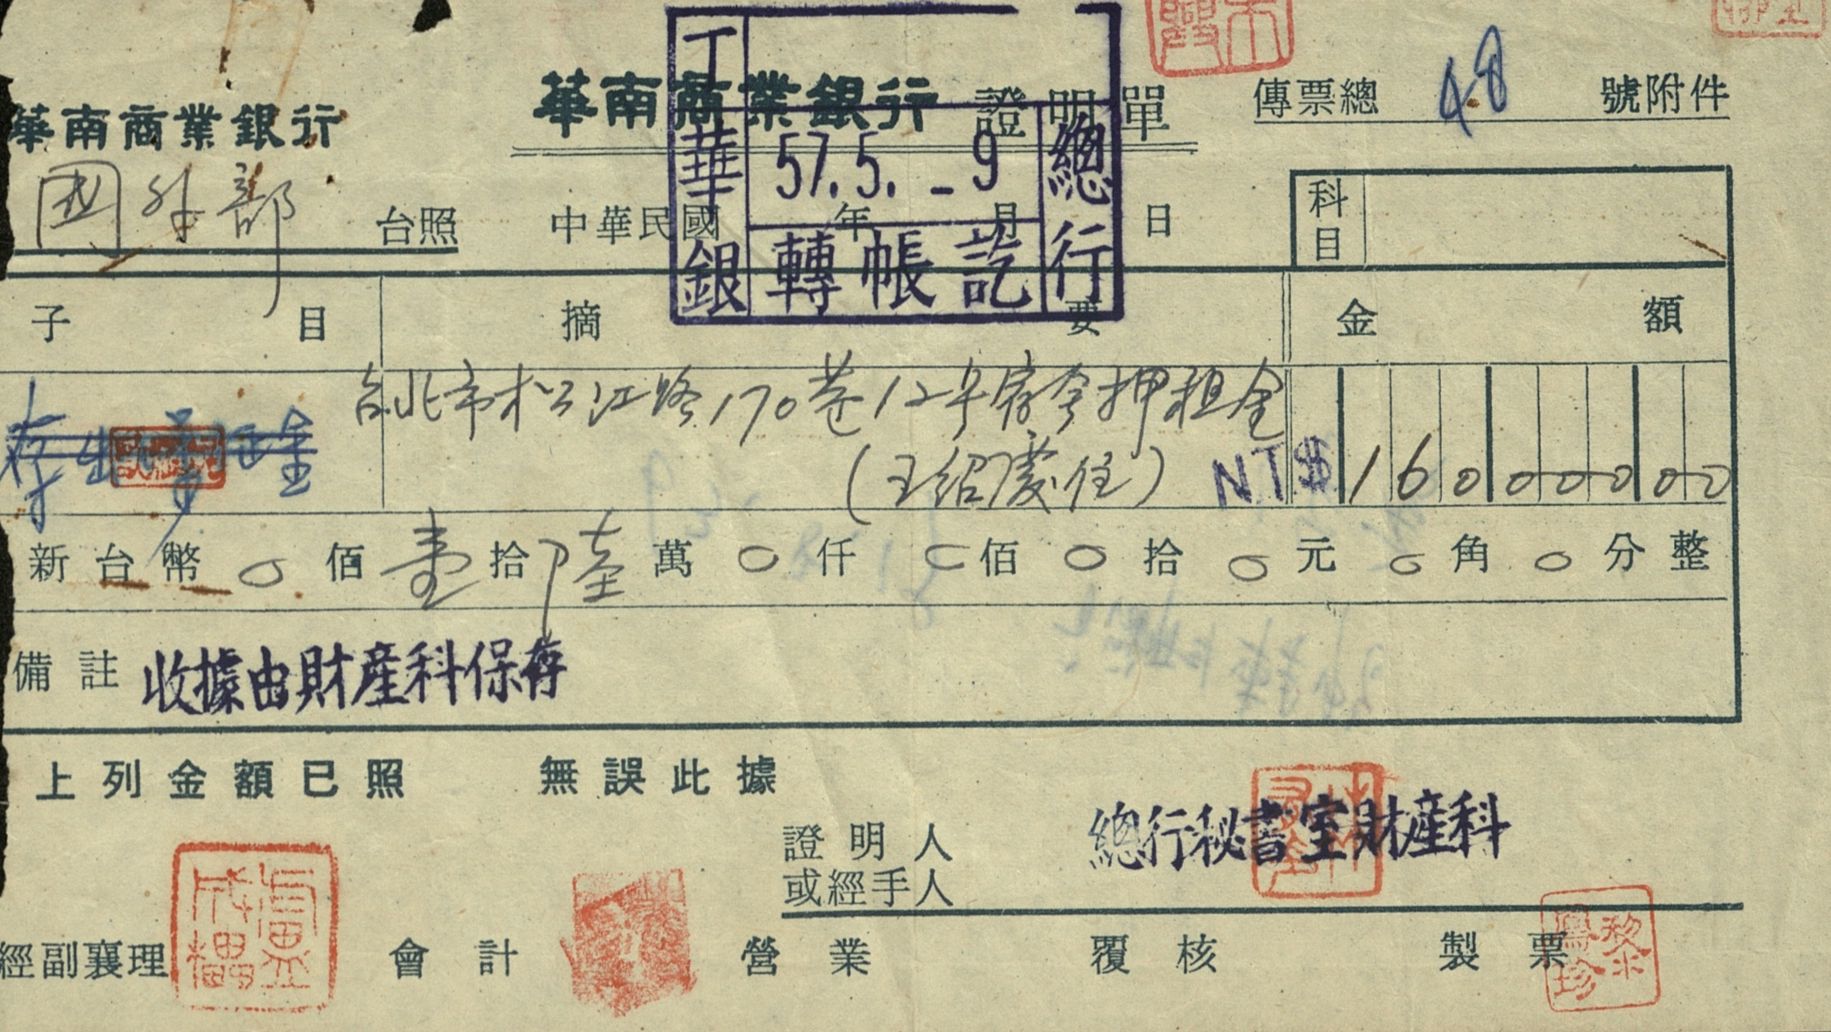 華南商業銀行 證明單
傳票總 48 號附件
華南商業銀行
國外部 台照
中華民國 年 月 日
丁 華銀 57.5.-9 轉帳訖 總行
科目
子目 摘要 金額
存出保證金
台北市松江路170巷12号宿舍押租金
(王紹慶住) NT$ 16000000
新台幣 0 佰 壹 拾 陸 萬 0 仟 0 佰 0 拾 0 元 0 角 0 分 整
備註 收據由財產科保存
上列金額已照 無誤此據
證明人
或經手人
總行秘書室財產科
經副襄理 會計 營業 覆核 製票
黎鳳珍